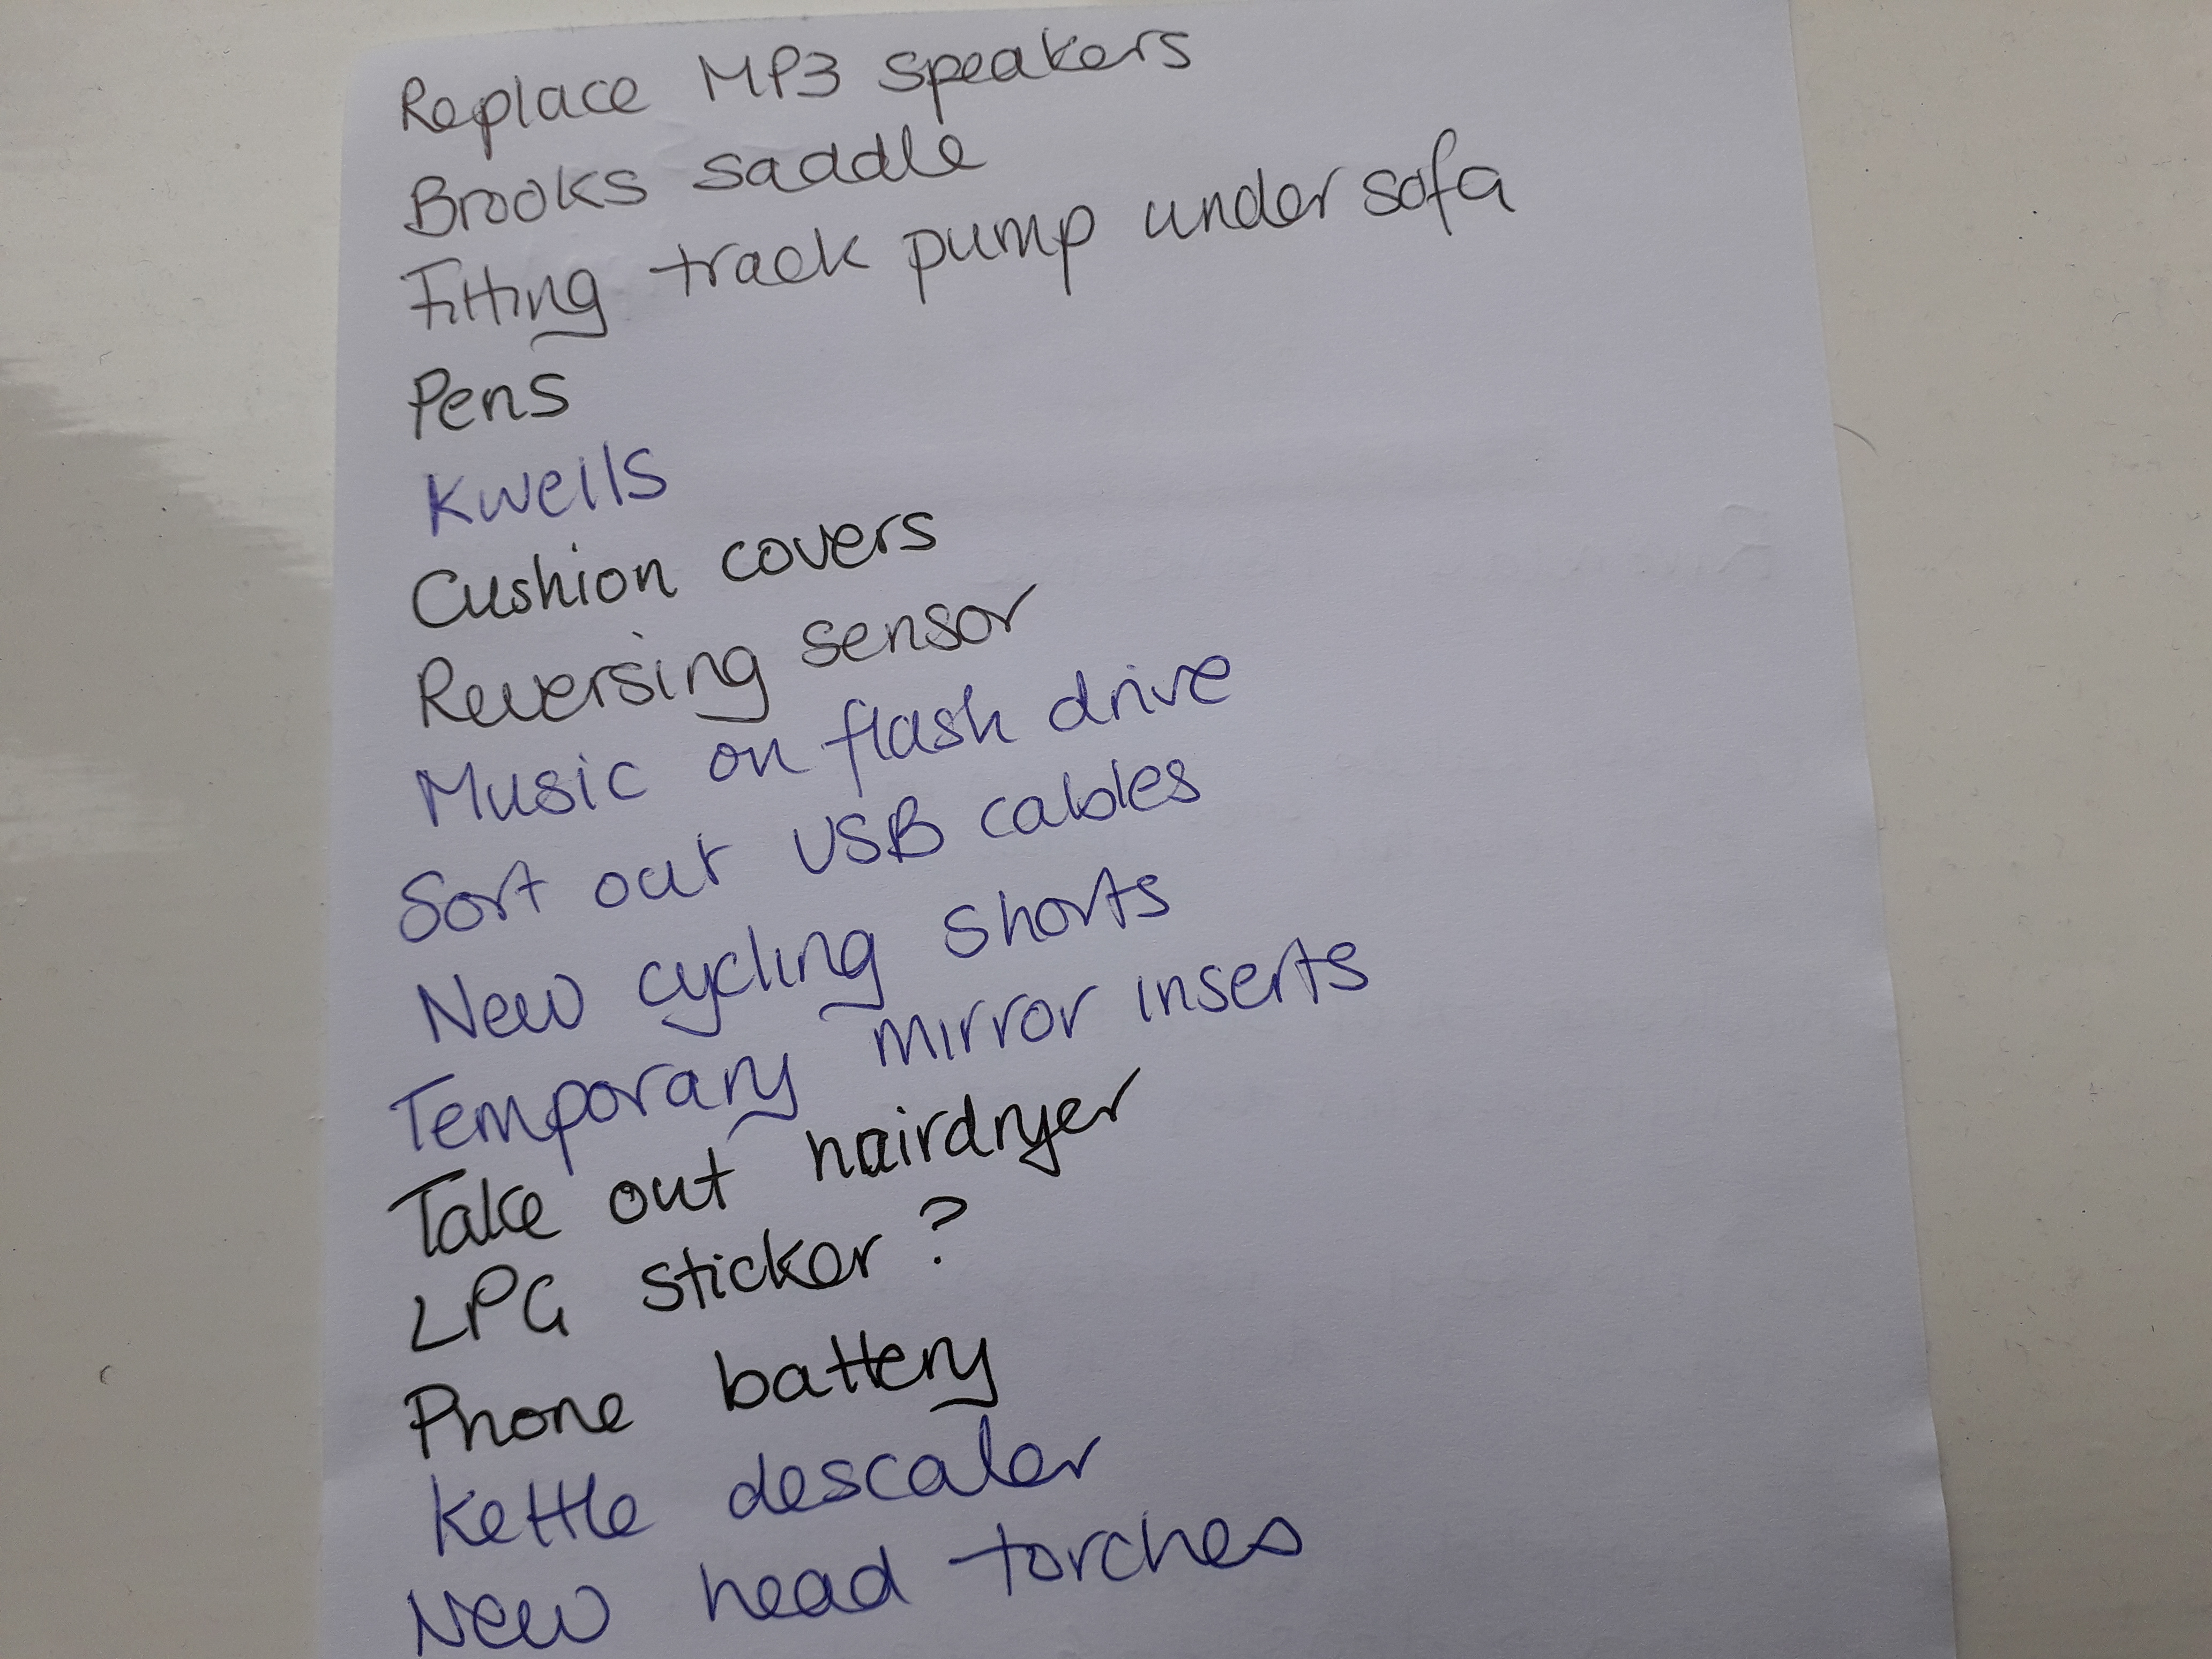 Replace MP3 speakers
Brooks saddle
Fitting track pump under sofa
Pens
Kweils
Cushion covers
Reversing sensor
Music on flash drive
Sort out USB cables
New cycling shorts
Temporary mirror inserts
Take out hairdryer
LPG sticker ?
Phone battery
Kettle descaler
New head torches